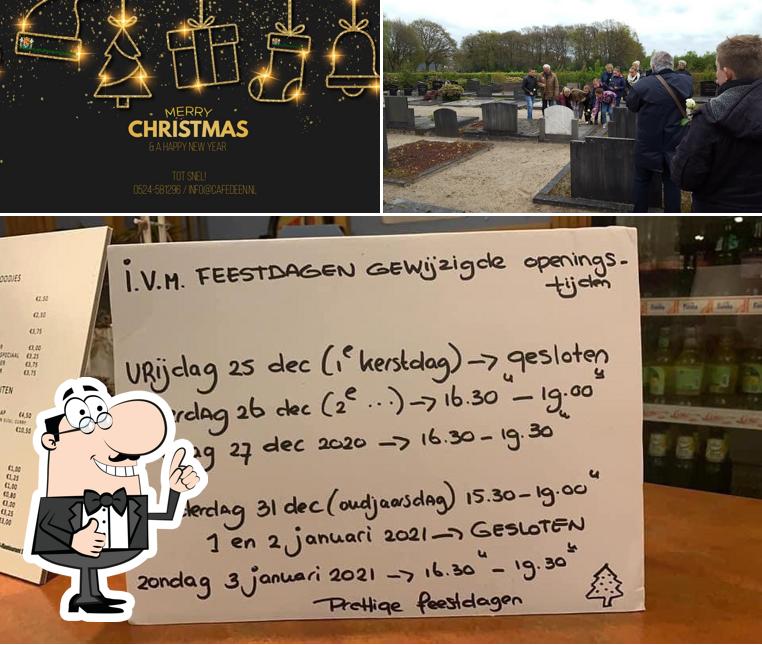 MERRY
CHRISTMAS
& A HAPPY NEW YEAR
TOT SNEL!
0524-581296 / INFO@CAFEDEEN.NL
€2,50
€2,50
€3,75
€3,00
€3,25
€3,75
€3,75
€4,50
€10,50
€1,00
€1,25
€1,00
€0,80
€3,00
€3,25
i.V.M. FEESTDAGEN GEWijzigde openings-
tijden
VRijdag 25 dec (1e kerstdag) -> gesloten
rdAg 26 dec (2e ...) -> 16.30 u - 19.00 u
ag 27 dec 2020 -> 16.30 - 19.30 u
derdag 31 dec (oudjaarsdAg) 15.30 - 19.00 u
1 en 2 januari 2021 -> GESLOTEN
zondag 3 januari 2021 -> 16.30 u - 19.30 u
Prettige feestdagen